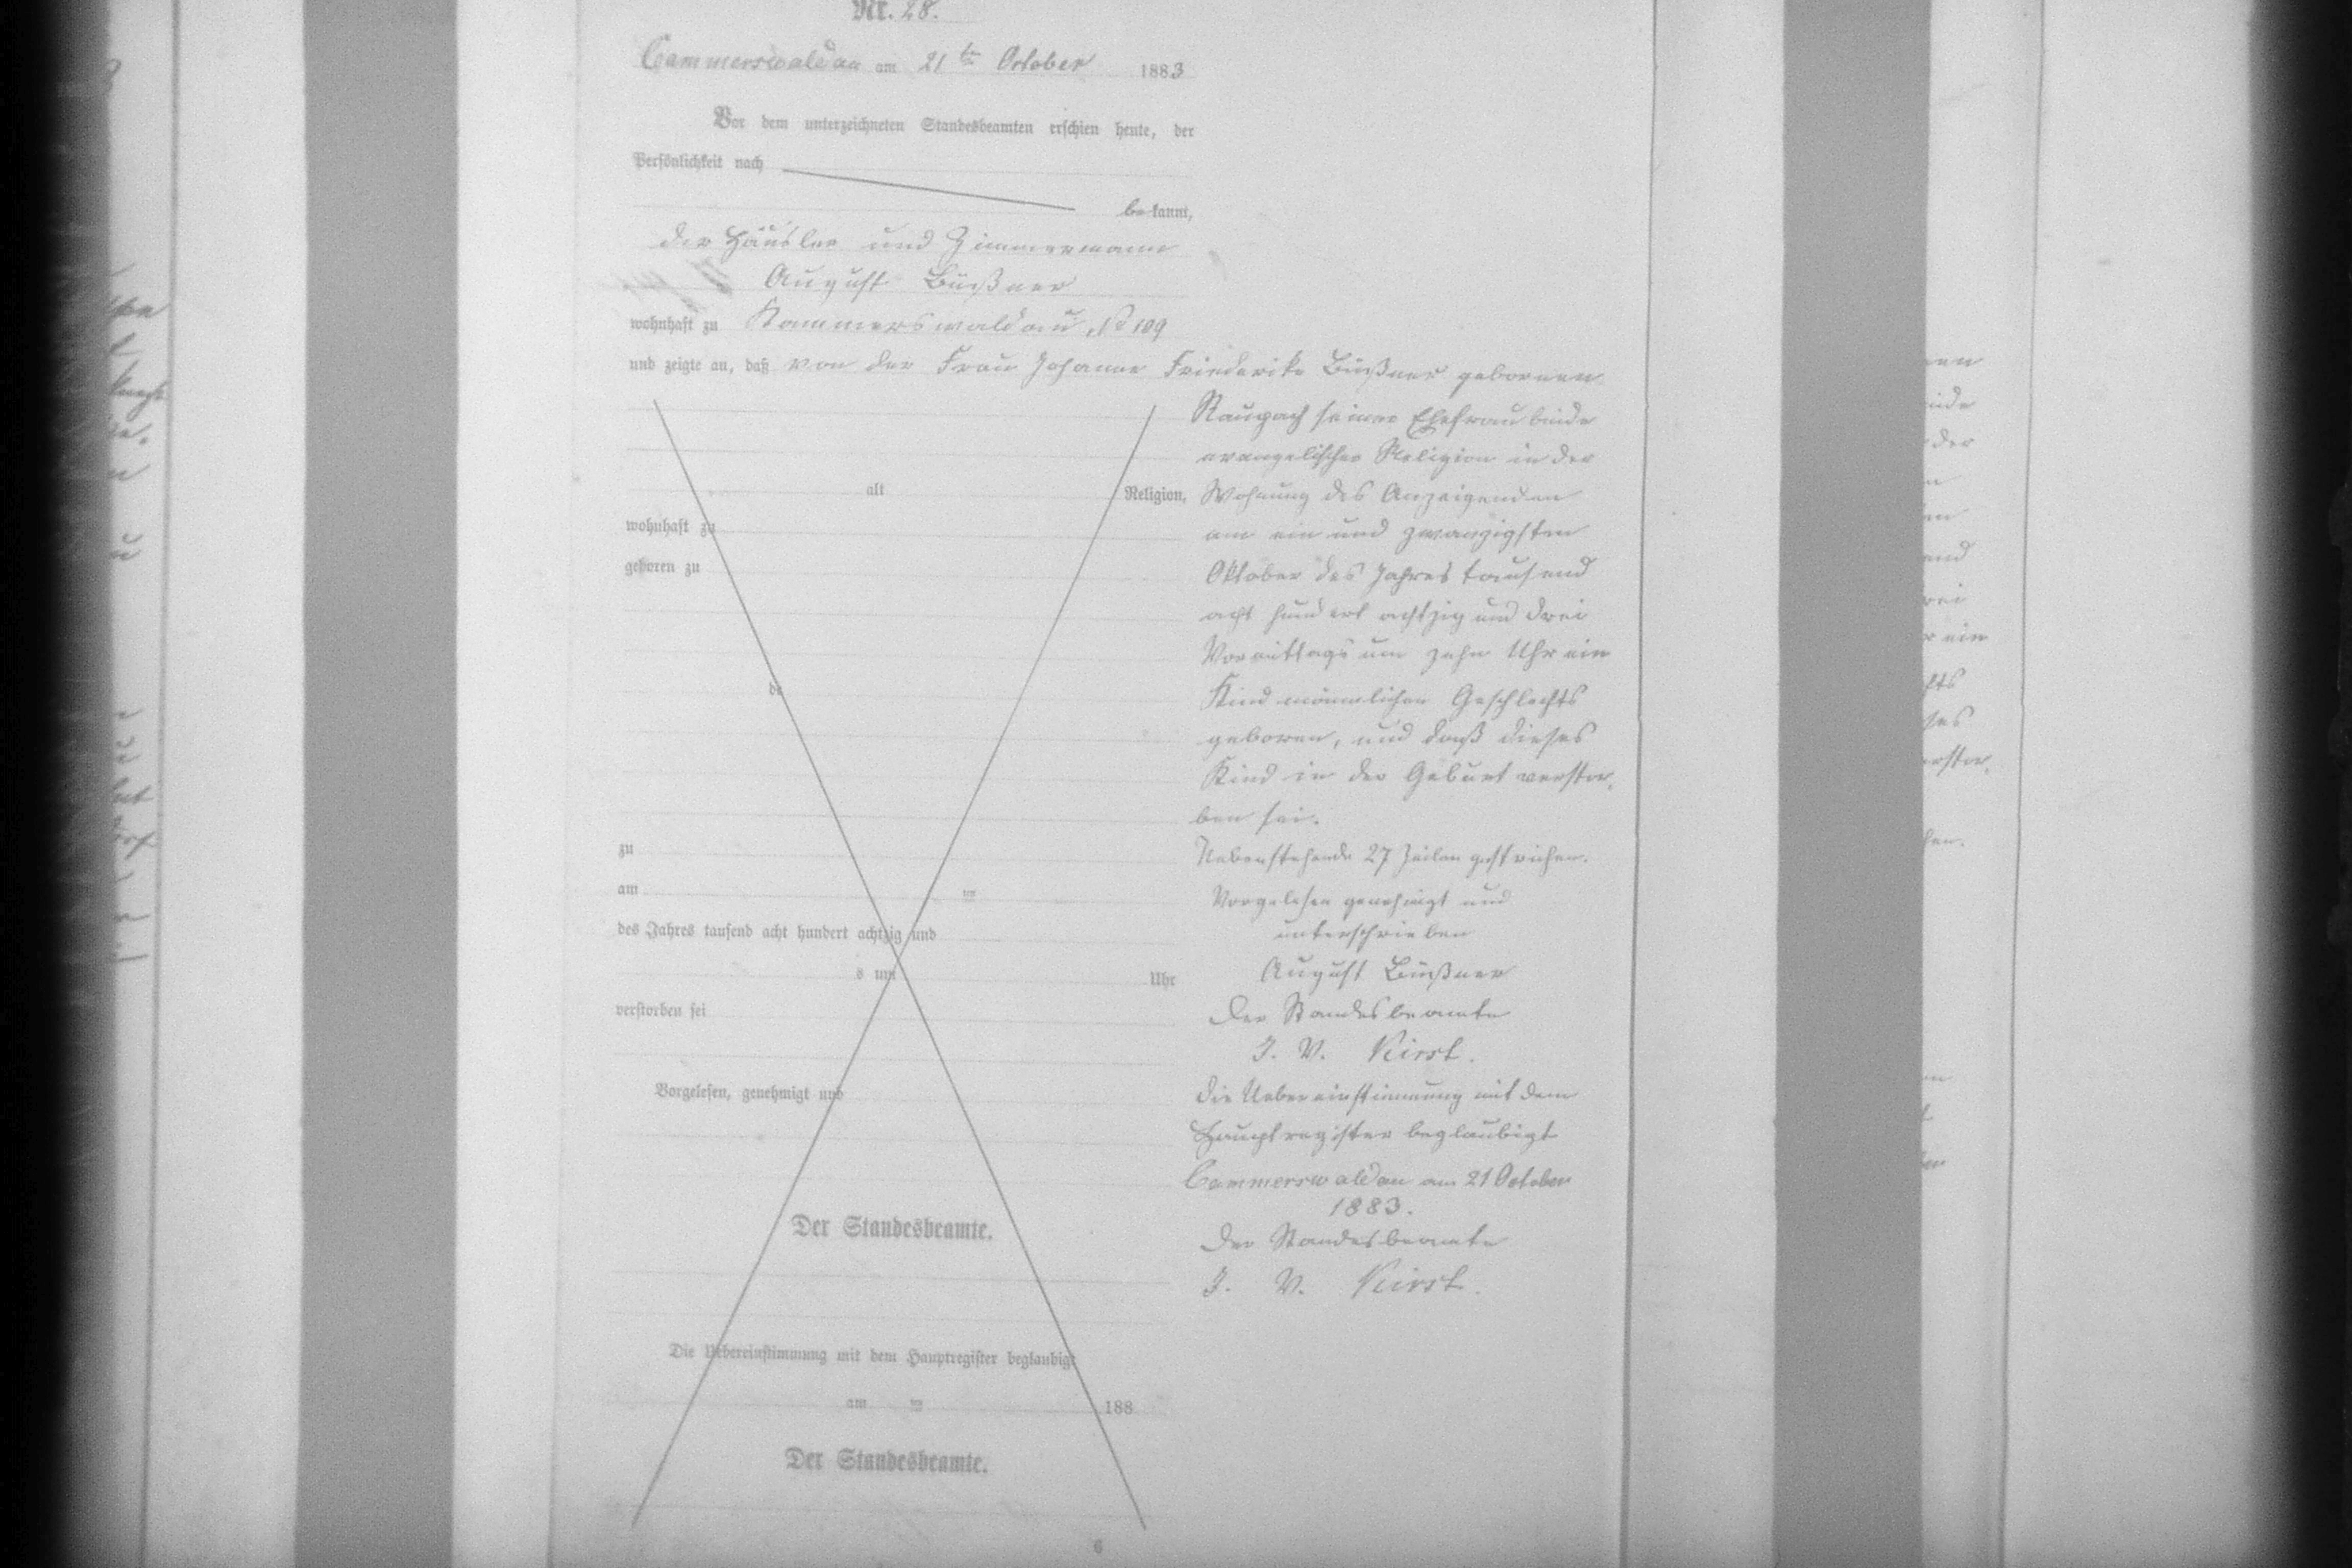 Nr. 28.
Cammerswaldau am 21ten October 1883
Vor dem unterzeichneten Standesbeamten erschien heute, der
Persönlichkeit nach
bekannt,
der Häusler und Zimmermann
August Büßner
wohnhaft zu Kammerswaldau, No 109
und zeigte an, daß von der Frau Johanne Friederike Büßner gebornen
Raupach seiner Ehefrau beide
evangelischer Religion in der
alt Religion, Wohnung des Anzeigenden
wohnhaft zu am ein und zwanzigsten
geboren zu Oktober des Jahres tausend
acht hundert achtzig und drei
Vormittags um zehn Uhr ein
de Kind männlichen Geschlechts
geboren, und daß dieses
Kind in der Geburt verstor,
ben sei.
zu Nebenstehende 27 Zeilen gestrichen.
am ten Vorgelesen genehmigt und
des Jahres tausend acht hundert achtzig und unterschrieben
s um Uhr August Büßner
verstorben sei Der Standesbeamte
J. V. Kirst.
Vorgelesen, genehmigt und Die Uebereinstimmung mit dem
Hauptregister beglaubigt
Cammerswaldau am 21 October
1883.
Der Standesbeamte. Der Standesbeamte
J. V. Kirst.
Die Uebereinstimmung mit dem Hauptregister beglaubigt
am ten 188
Der Standesbeamte.
6